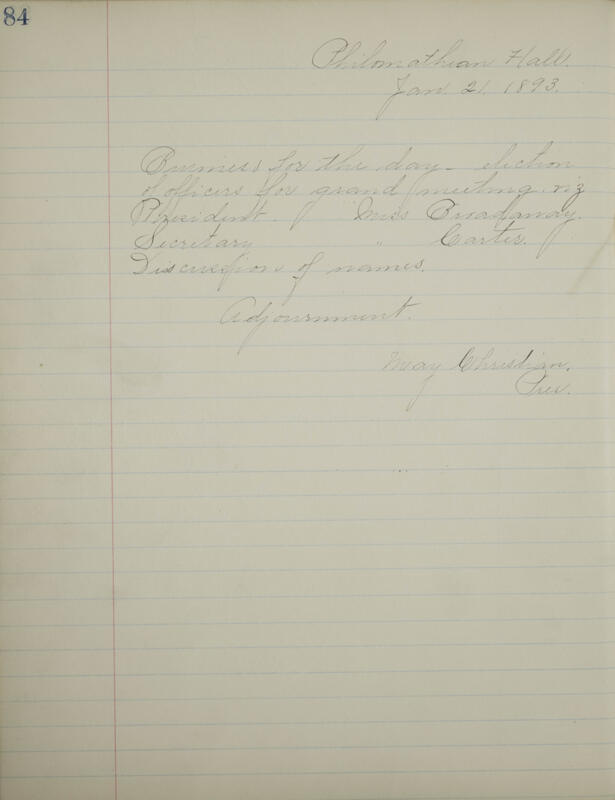 84
Philomathian Hall.
Jan. 21. 1893.
Business for the day - election
of officers for grand meeting. viz
President. Miss Broadaway.
Secretary " Carter.
Discussion of names.
Adjournment.
May Christian.
Pres.